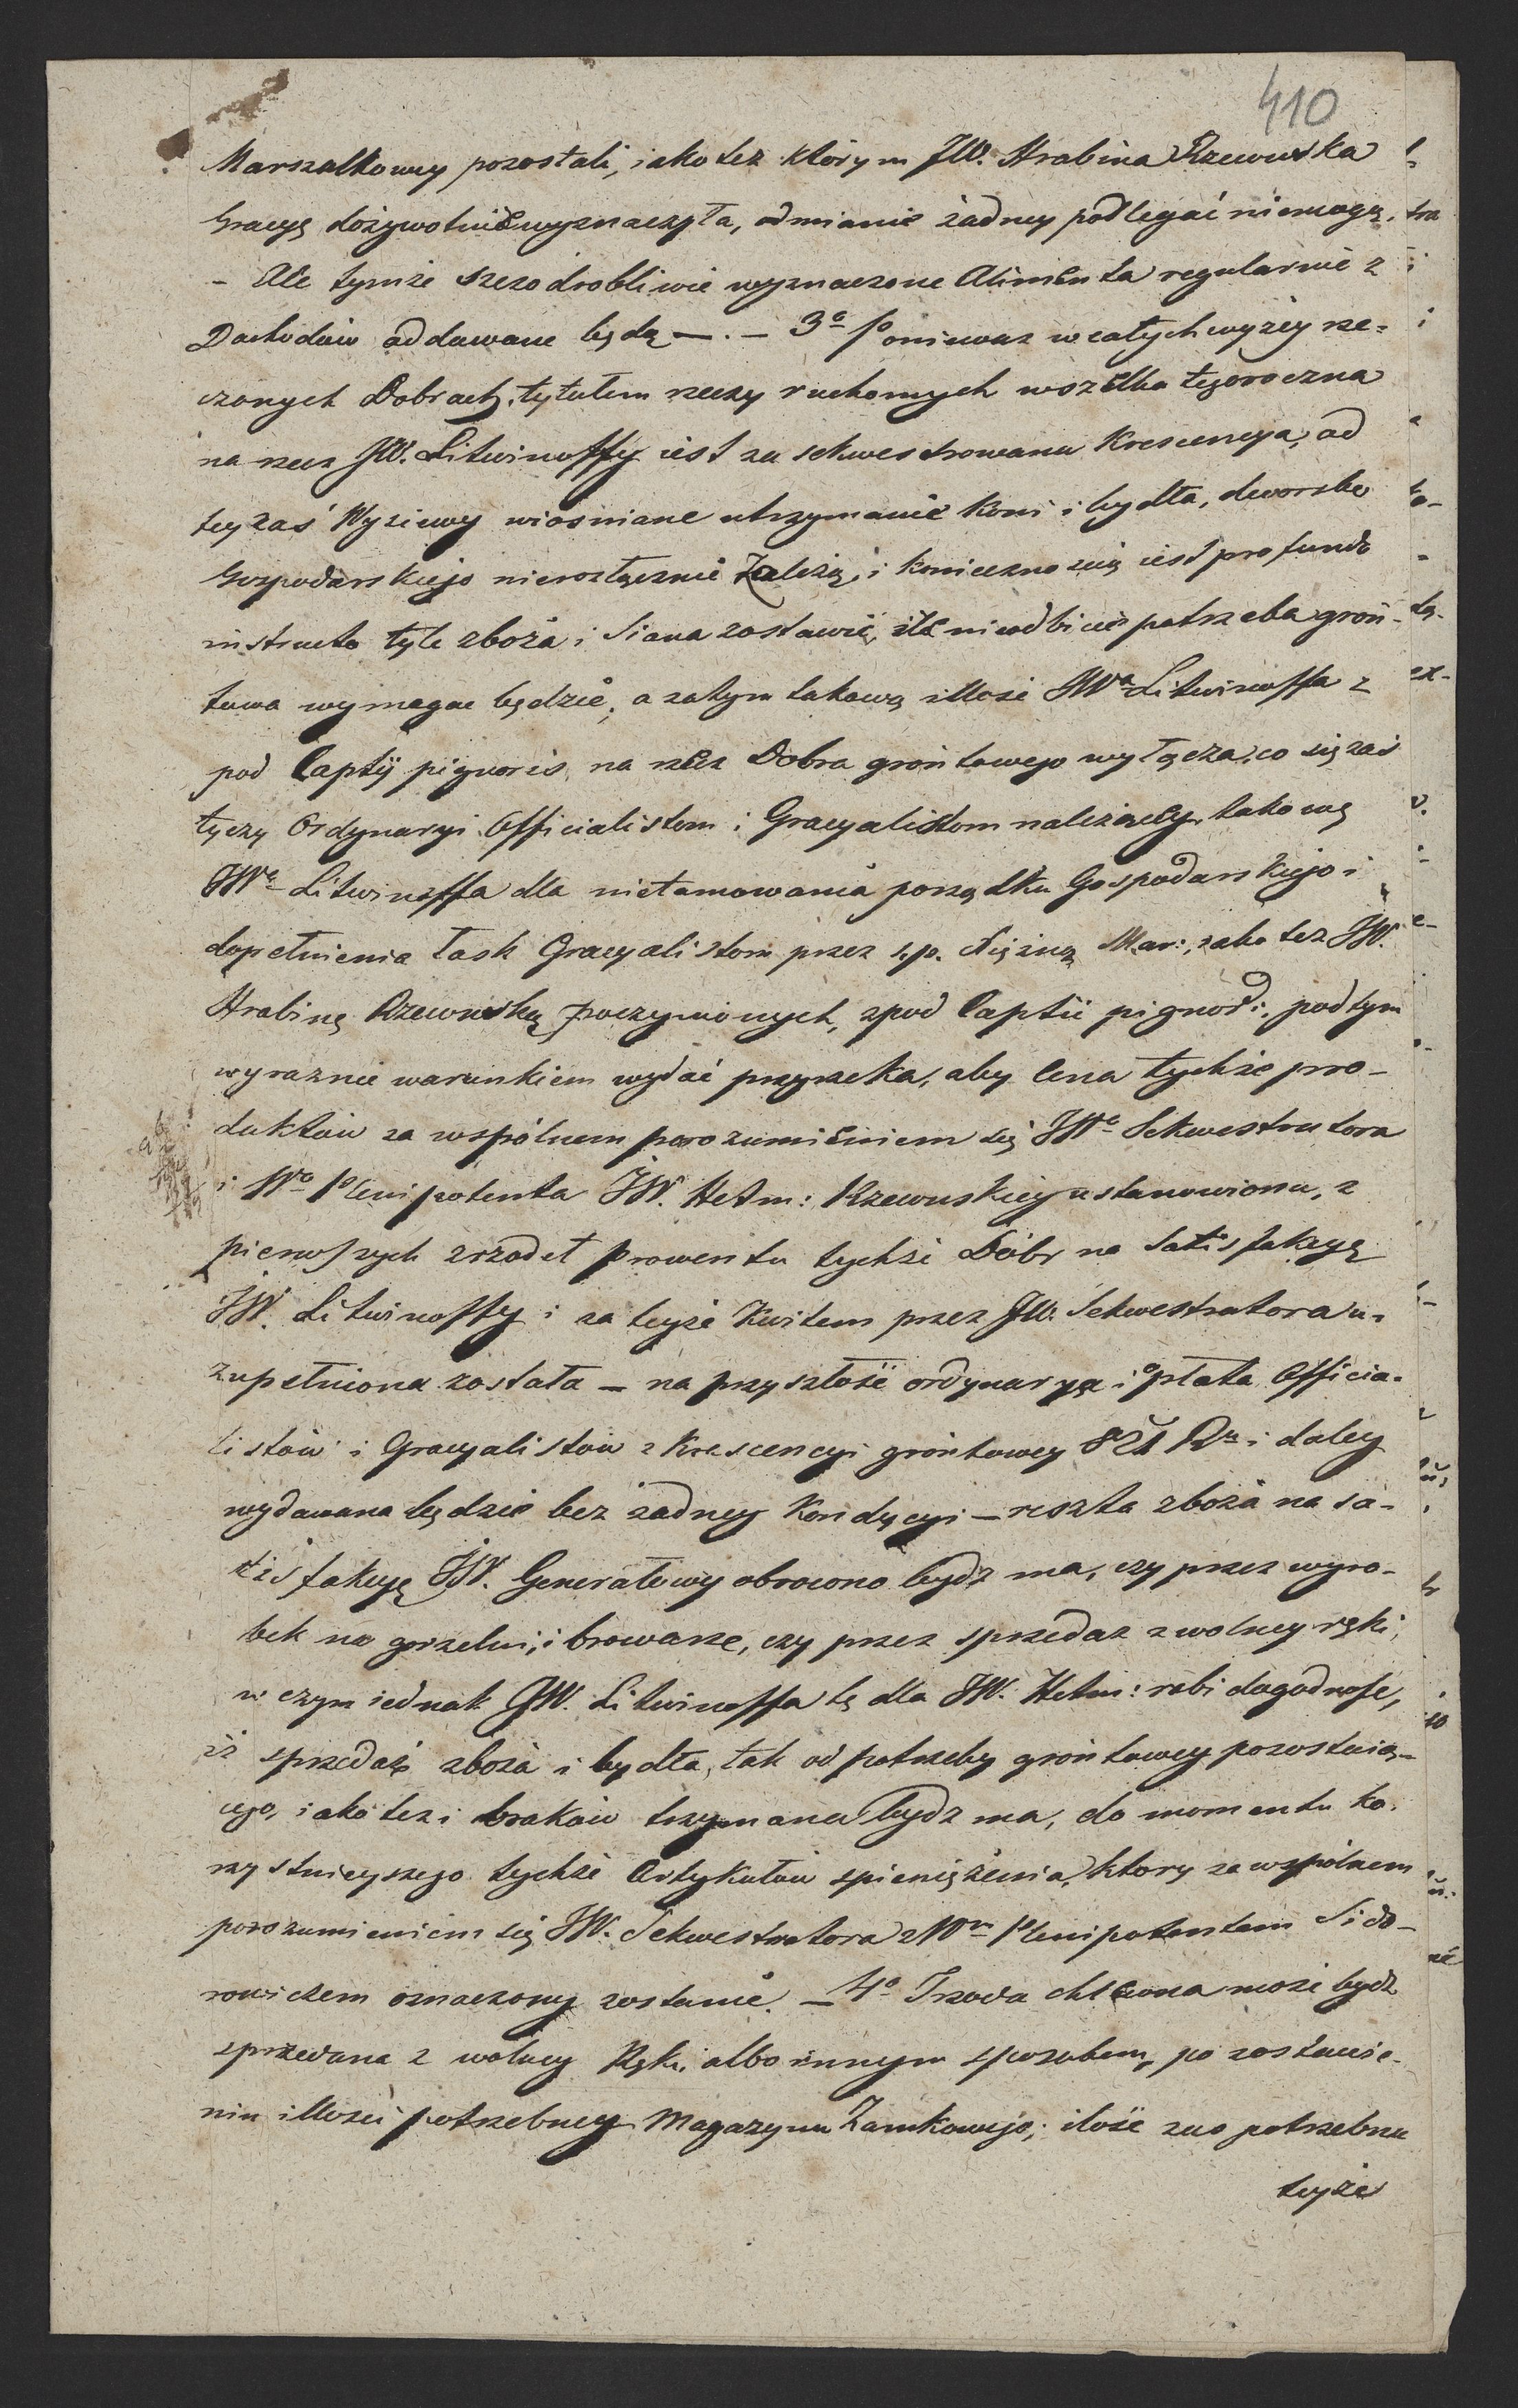 410
Marszałkowey pozostali, iako też którym JW. Hrabina Rzewuska
Gracyę dożywotnie wyznaczyła, odmianie żadney podlegać niemogą.
- Ale tymże szczodrobliwie wyznaczone Alimenta regularnie z
Dochodów oddawane będą —.— 3o Poniewaz w całych wyżey rze=
czonych Dobrach, tytułem rzeczy ruchomych wszelka tegoroczna
na rzecz JW. Litwinoffy iest za sekwestrowana Krescencya, od
tey zaś Wysiewy wiosniane utrzymanie koni i bydła, dworsko
Gospodarskiego nierozłącznie Zależą, i koniecznością iest pro fundo
instructo tyle zboża i Siana zostawić, ile nieodbicie potrzeba gron-
towa wymagac będzie, a zatym takową illość JWa Litwinoffa z
pod Captÿ pignoris, na rzecz Dobra grontowego wyłącza, co się zaś
tyczy Ordynaryi Officialistom i Gracyalistom należącey, takową
JWa Litwinoffa dla nietamowania porządku Gospodarskiego i
dopełnienia łask Gracyalistom przez s.p. Xiężnę Mar:, iako też JW.
Hrabinę Rzewuską poczynionych, zpod Captii pignori, pod tym
wyraznie warunkiem wydać przyrzeka, aby Cena tychże pro-
duktów za wspólnem porozumieniem się JWo Sekwestratora
i Wo Plenipotenta JW. Hetm: Rzewuskiey ustanowiona, z
pierwszych zrzodeł prowentu tychże Dóbr na Satisfakcyę
JW. Litwinoffy i za teyże Kwitem przez JW. Sekwestratora u-
zupełniona została — na przyszłość ordynarya i płata Officia-
listów i Gracyalistów z Krescencyi grontowey 821 Ru i daley
wydawana będzie bez żadney Kondycyi — reszta zboża na sa-
tisfakcyę JW. Generałowy obrocono bydz ma, czy przez wyro-
bek na gorzelni, i browarze, czy przez sprzedaz z wolney ręki,
w czym iednak JW. Litwinoffa tę dla JW. Hetm: robi dogodnosc,
iż sprzedaż zboża i bydła, tak od potrzeby grontowey pozostaią-
cego, iako też i braków trzymana bydz ma, do momentu ko-
rzystnieyszego tychże Artykułów spieniężenia, ktory za wspólnem
porozumieniem się JW. Sekwestratora z Wm Plenipotentem Sido-
rowiczem oznaczony zostanie. — 4o Trzoda chlewna może bydz
sprzedana z wolney Ręki, albo innym sposobem, po zostawie-
niu illości potrzebney Magazynu Zamkowego; ilość zas potrzebna
teyże